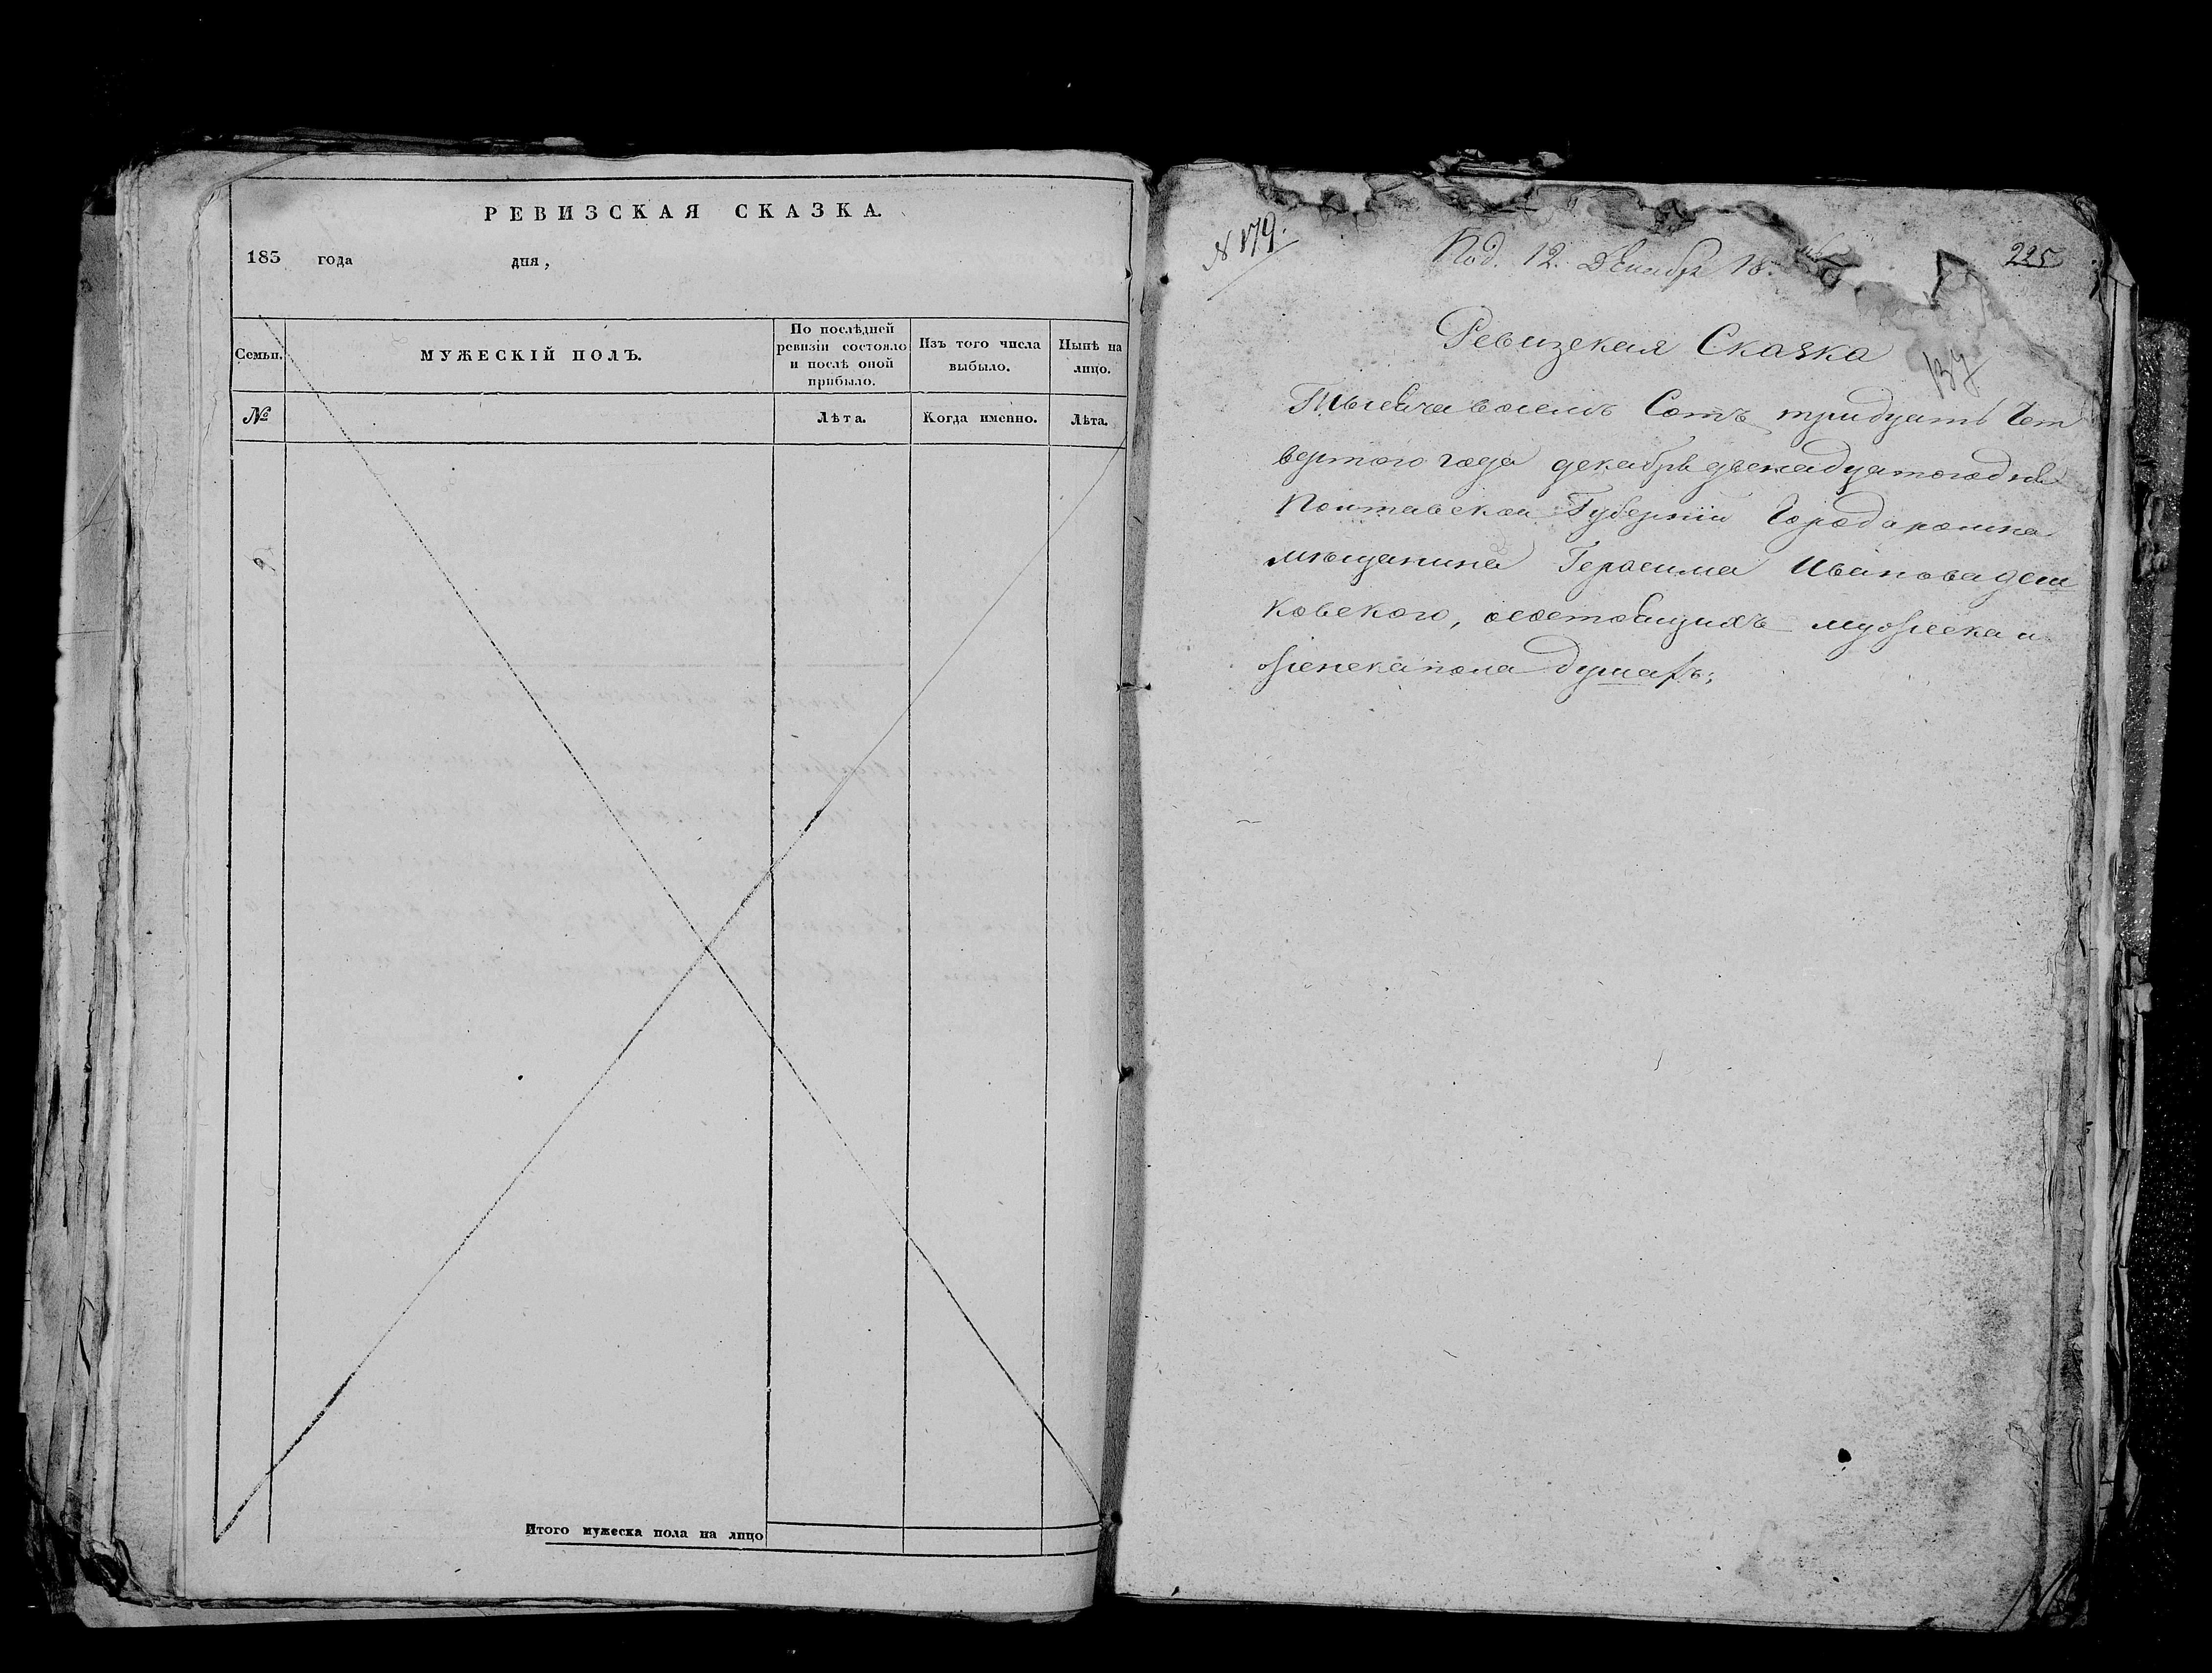 РЕВИЗСКАЯ СКАЗКА.
185 года дня,
Семьи.
МУЖЕСКІЙ ПОЛЪ.
По послѣдней
ревизіи состояло
и послѣ оной
прибыло.
Изъ того числа
выбыло.
Нынѣ на
лицо.
№
Лѣта.
Когда именно.
Лѣта.
Итого мужеска пола на лицо
N 179.
Под. 12. Декабря 18
225
137
Ревизская Сказка
Тысяча восемь Сотъ тридцать Чет
вертого года декабря двенадцатого дня
Полтавской Губерніи Города ромна
мѣщанина Герасима Иванова
ковского, о состоящихъ мужеска и
женска пола душахъ;